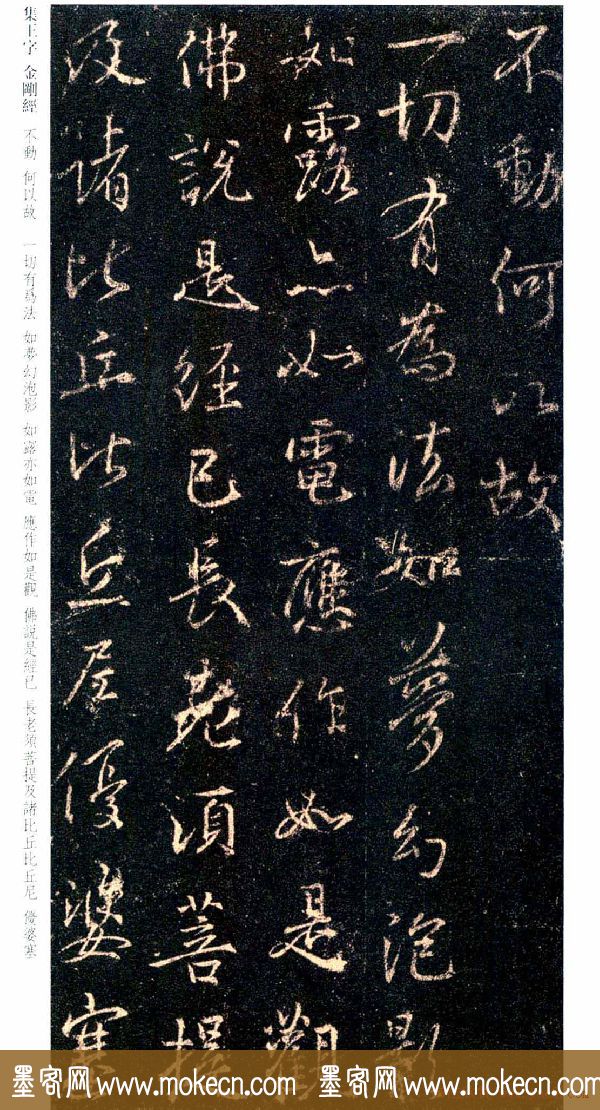 不動何以故
一切有為法如夢幻泡影
如露亦如電應作如是觀
佛說是經已長老須菩提
及諸比丘比丘尼優婆塞
集王字 金剛經 不動 何以故 一切有爲法 如夢幻泡影 如露亦如電 應作如是觀 佛説是經已 長老須菩提及諸比丘比丘尼 優婆塞
墨客网 www.mokecn.com 墨客网 www.mokecn.com